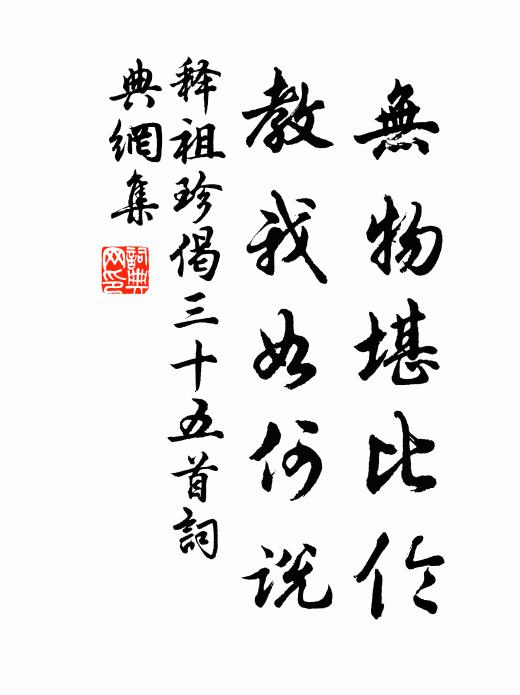 無物堪比伦
教我如何説
释祖珍偈三十五首詞
典網集
詞典网印